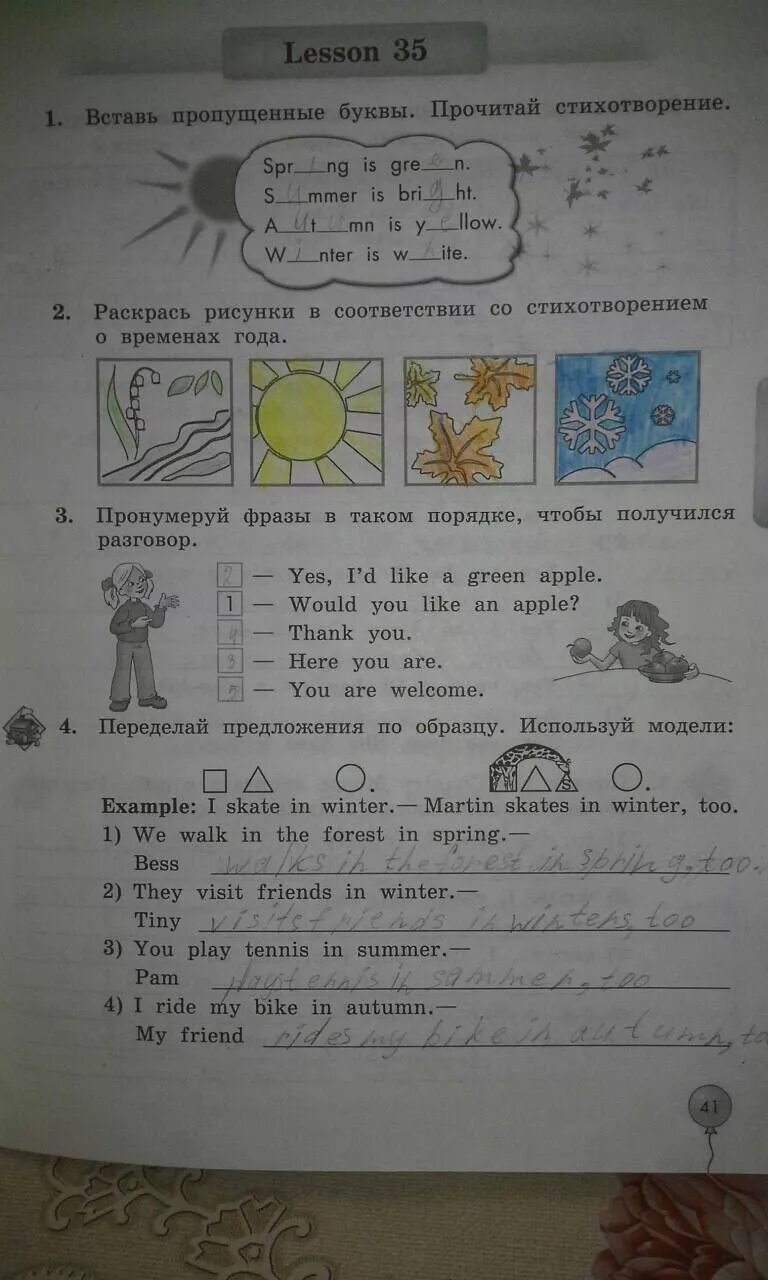 Lesson 35
1. Вставь пропущенные буквы. Прочитай стихотворение.
Spring is green.
Summer is bright.
Autumn is yellow.
Winter is white.
2. Раскрась рисунки в соответствии со стихотворением
о временах года.
3. Пронумеруй фразы в таком порядке, чтобы получился
разговор.
2 — Yes, I'd like a green apple.
1 — Would you like an apple?
4 — Thank you.
3 — Here you are.
5 — You are welcome.
4. Переделай предложения по образцу. Используй модели:
S
Example: I skate in winter.— Martin skates in winter, too.
1) We walk in the forest in spring.—
Bess walks in the forest in spring, too.
2) They visit friends in winter.—
Tiny visits friends in winters, too
3) You play tennis in summer.—
Pam plays tennis in summer, too
4) I ride my bike in autumn.—
My friend rides my bike in autumn, to
41